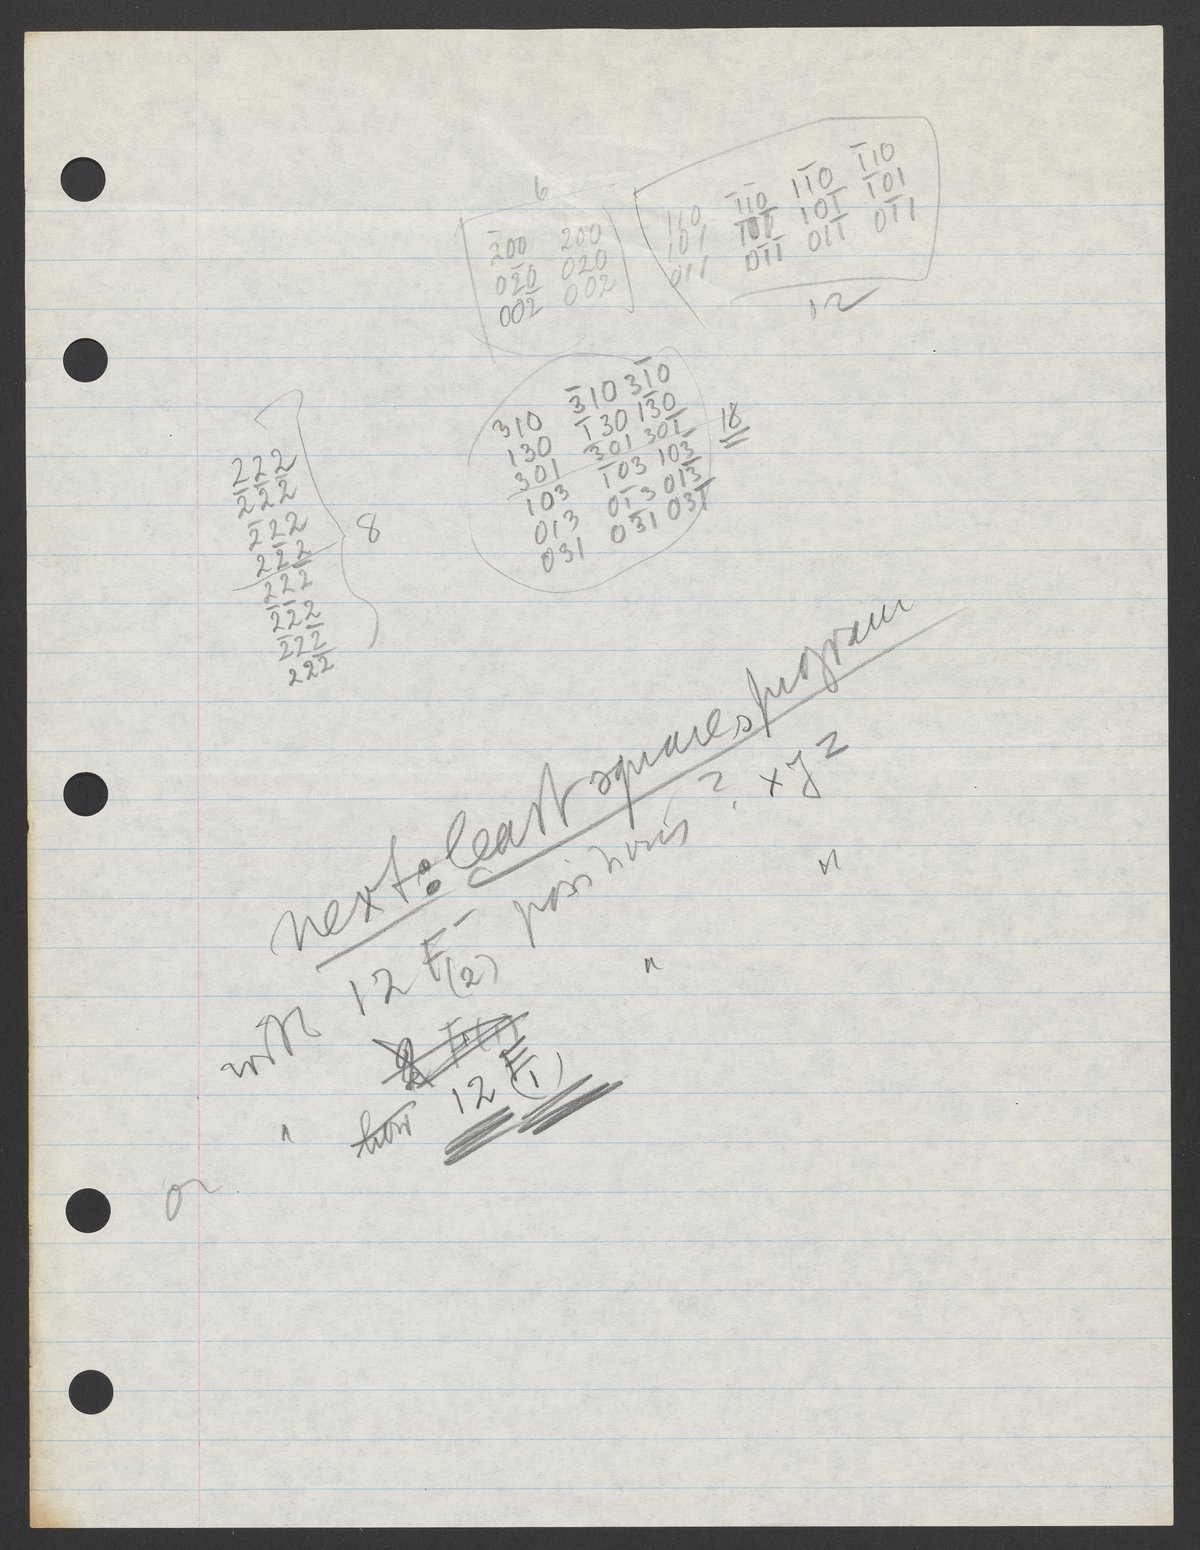 6
2̄00 200
02̄0 020
002̄ 002
110 1̄1̄0 11̄0 1̄10
101 1̄01̄ 101̄ 1̄01
011 01̄1̄ 011̄ 01̄1
12
310 3̄10 31̄0
130 1̄30 13̄0
301 3̄01 301̄
103 1̄03 103̄
013 01̄3 013̄
031 03̄1 031̄
18
222
2̄2̄2̄
2̄22
22̄2̄
22̄2
2̄2̄2
2̄22̄
222̄
8
next: least squares program
with 12 F⁻(2) positions ? xyz
or " 12 F(1) " "